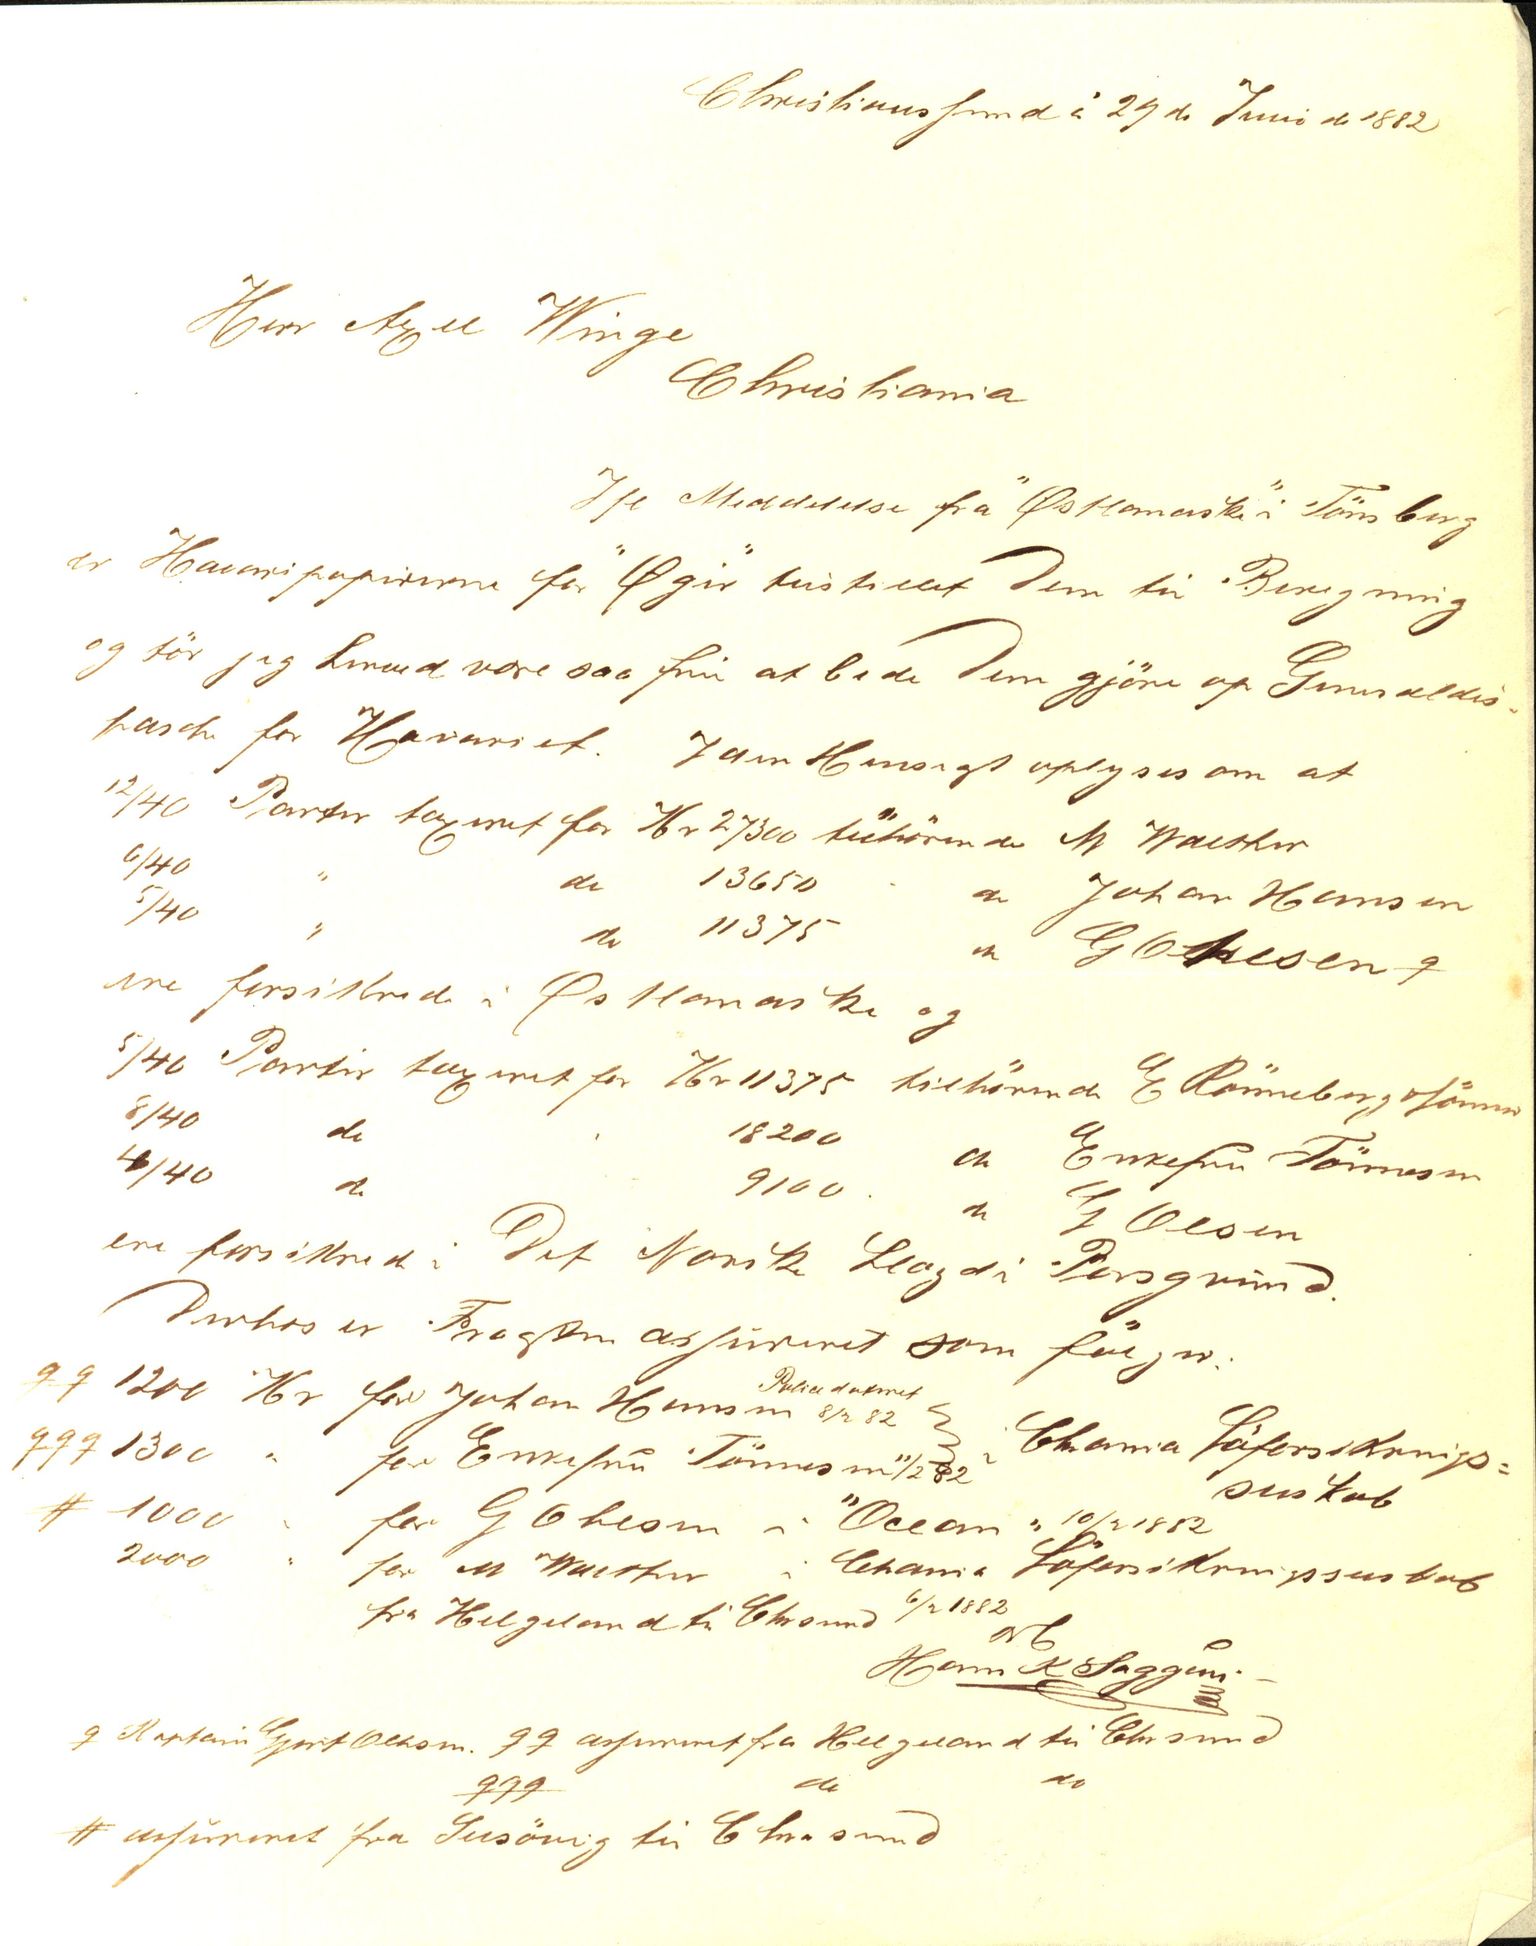 Christianssund a 29 de Juni de 1882
Herr Axel Winge
Christiania
Ifl Meddelelse frå "Østlandske" i Tönsberg
er Havaripapirerne for "Øgir" tilstillet Dem til Beregning
og tör jeg herved være saa fri at bede Dem gjöre op Generaldis-
pasche for Havariet. I den Hensigt oplyses om at
12/40 Parter taxeret for Kr 27300 tilhörende M Walther
6/40 " do 13650 do Johan Hansen
5/40 " do 11375 do G Ohlesen q
ere forsikrede i Østlandske og
5/40 Parter taxeret for Kr 11375 tilhörende E Rönneberg & Sönner
8/40 do 18200 do Enkefru Tönnesen
4/40 do 9100 do G Olesen
ere forsikrede i Det Norske Lloyd i Porsgrund.
Derhos er Fragten assureret som fölger:
qq 1200 Kr for Johan Hansen Police dateret 8/2 82
qqq 1300 " for Enkefru Tönnesen 11/2 82 i Chrania Söforsikrings=
selskab
# 1000 " for G Ohlesen i "Ocean" 10/2 1882
2000 " for M Walther i Chrania Söforsikringsselskab
fra Helgeland til Chrsund 6/2 1882
Hans K
q Kaptain Gjert Olesen. qq assureret fra Helgeland til Chrsund
qqq do do
# assureret fra til Chrasund